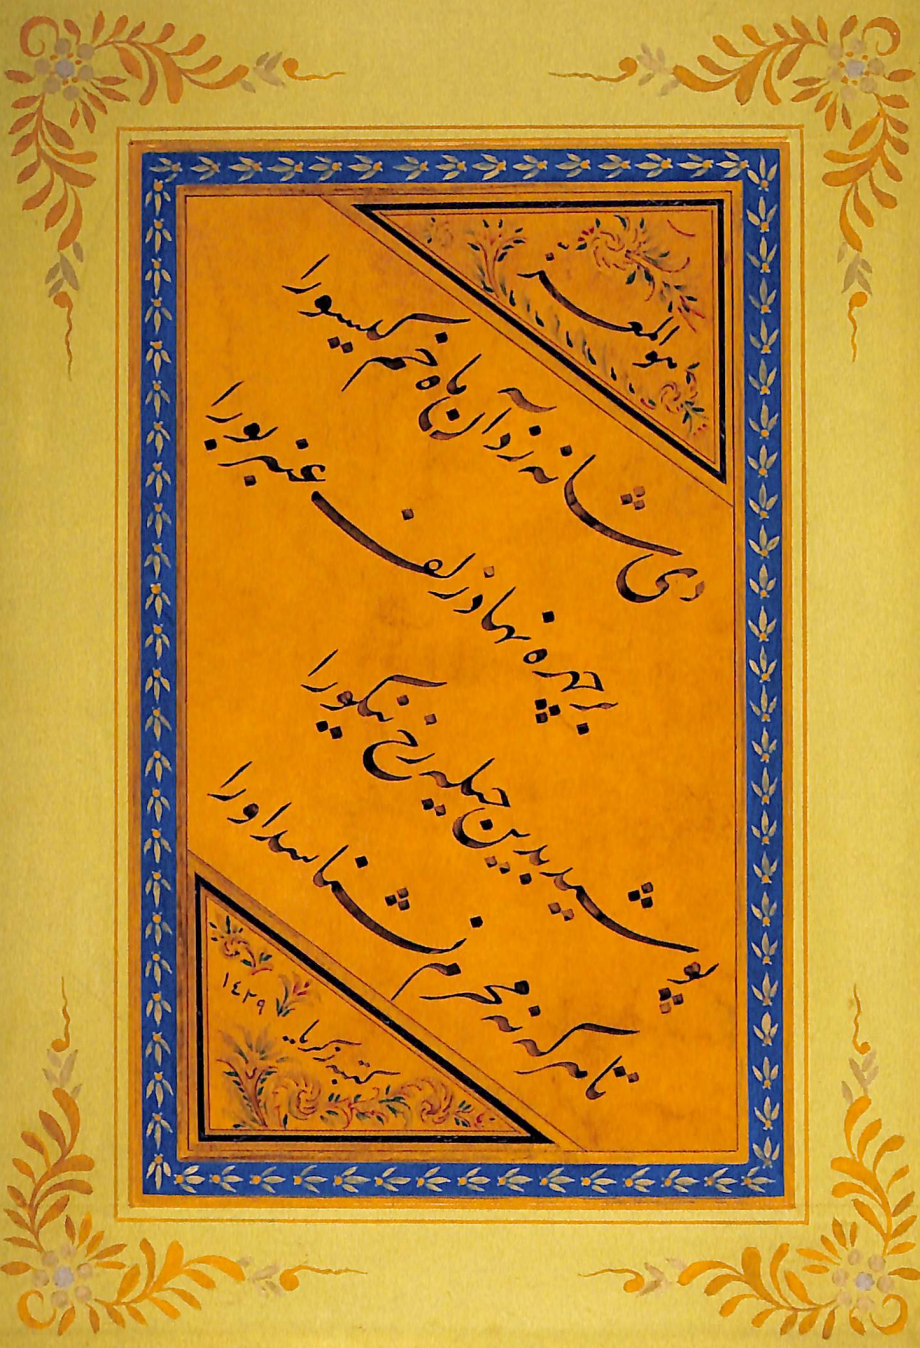 هو المعز
دی شانه زد آن ماه خم گیسو را
بر چهره نهاد زلف عنبر بو را
پوشید بدین حیله رخ نیکو را
تا هر که نه محرم نشناسد او را
کتبه زکریا
۱٤۲۹